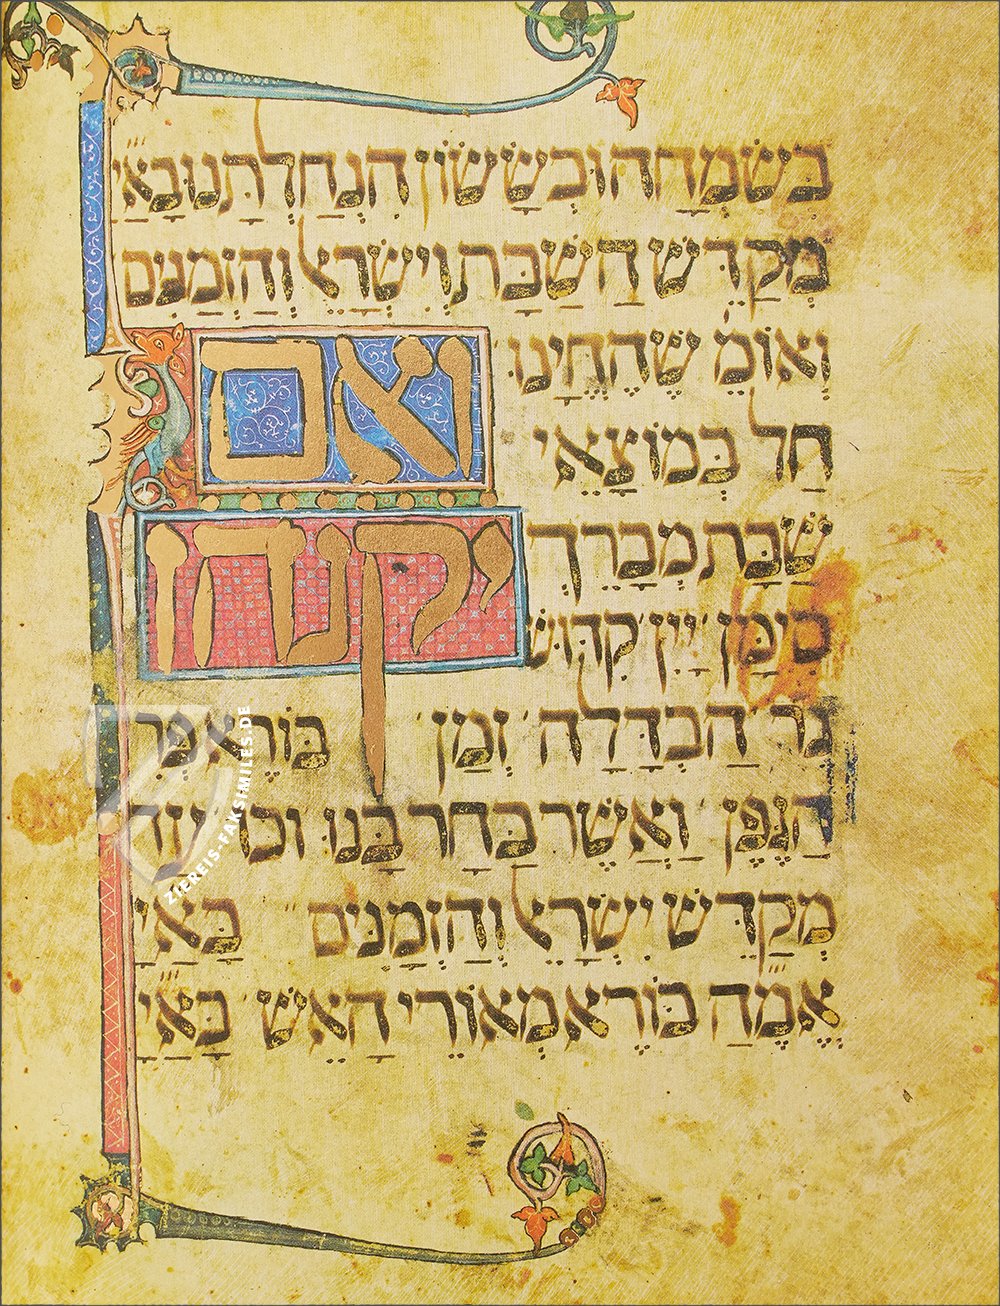 בְּשִׂמְחָה וּבְשָׂשׂוֹן הִנְחַלְתָּנוּ בָּאַ״יְ
מְקַדֵּשׁ הַשַּׁבָּת וְיִשְׂרָאֵל וְהַזְּמַנִּים
וְאוֹמֵ׳ שֶׁהֶחֱיָנוּ׳
אם
חַל בְּמוֹצָאֵי
שַׁבָּת מְבָרֵךְ
יקנהז
סִימָן׳ יַיִן׳ קִדּוּשׁ
נֵר׳ הַבְדָּלָה׳ זְמַן׳ בּוֹרֵא פְּרִי
הַגֶּפֶן׳ וַאֲשֶׁר בָּחַר בָּנוּ וכו׳ עַד
מְקַדֵּשׁ יִשְׂרָאֵל וְהַזְּמַנִּים״ בָּאַיְ
אֱמֶהַ בּוֹרֵא מְאוֹרֵי הָאֵשׁ׳ בָּאַ״יְ
ZIEREIS-FAKSIMILES.DE